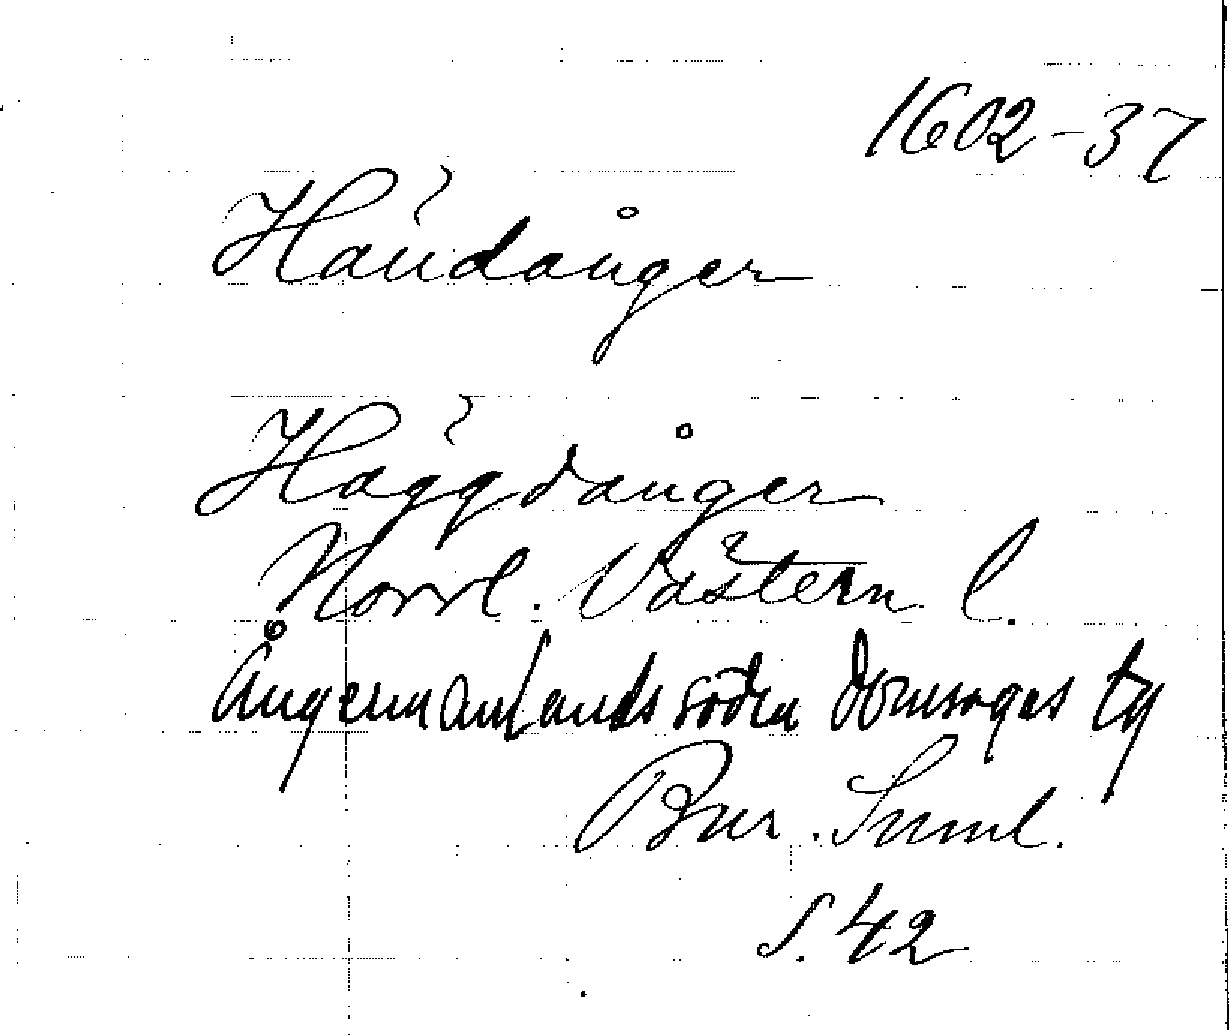 1602-37
Händånger
Häggdånger
Norrl. Västern. l.
Ångermanlands södra domsagas tg
Bur. Saml.
s. 42